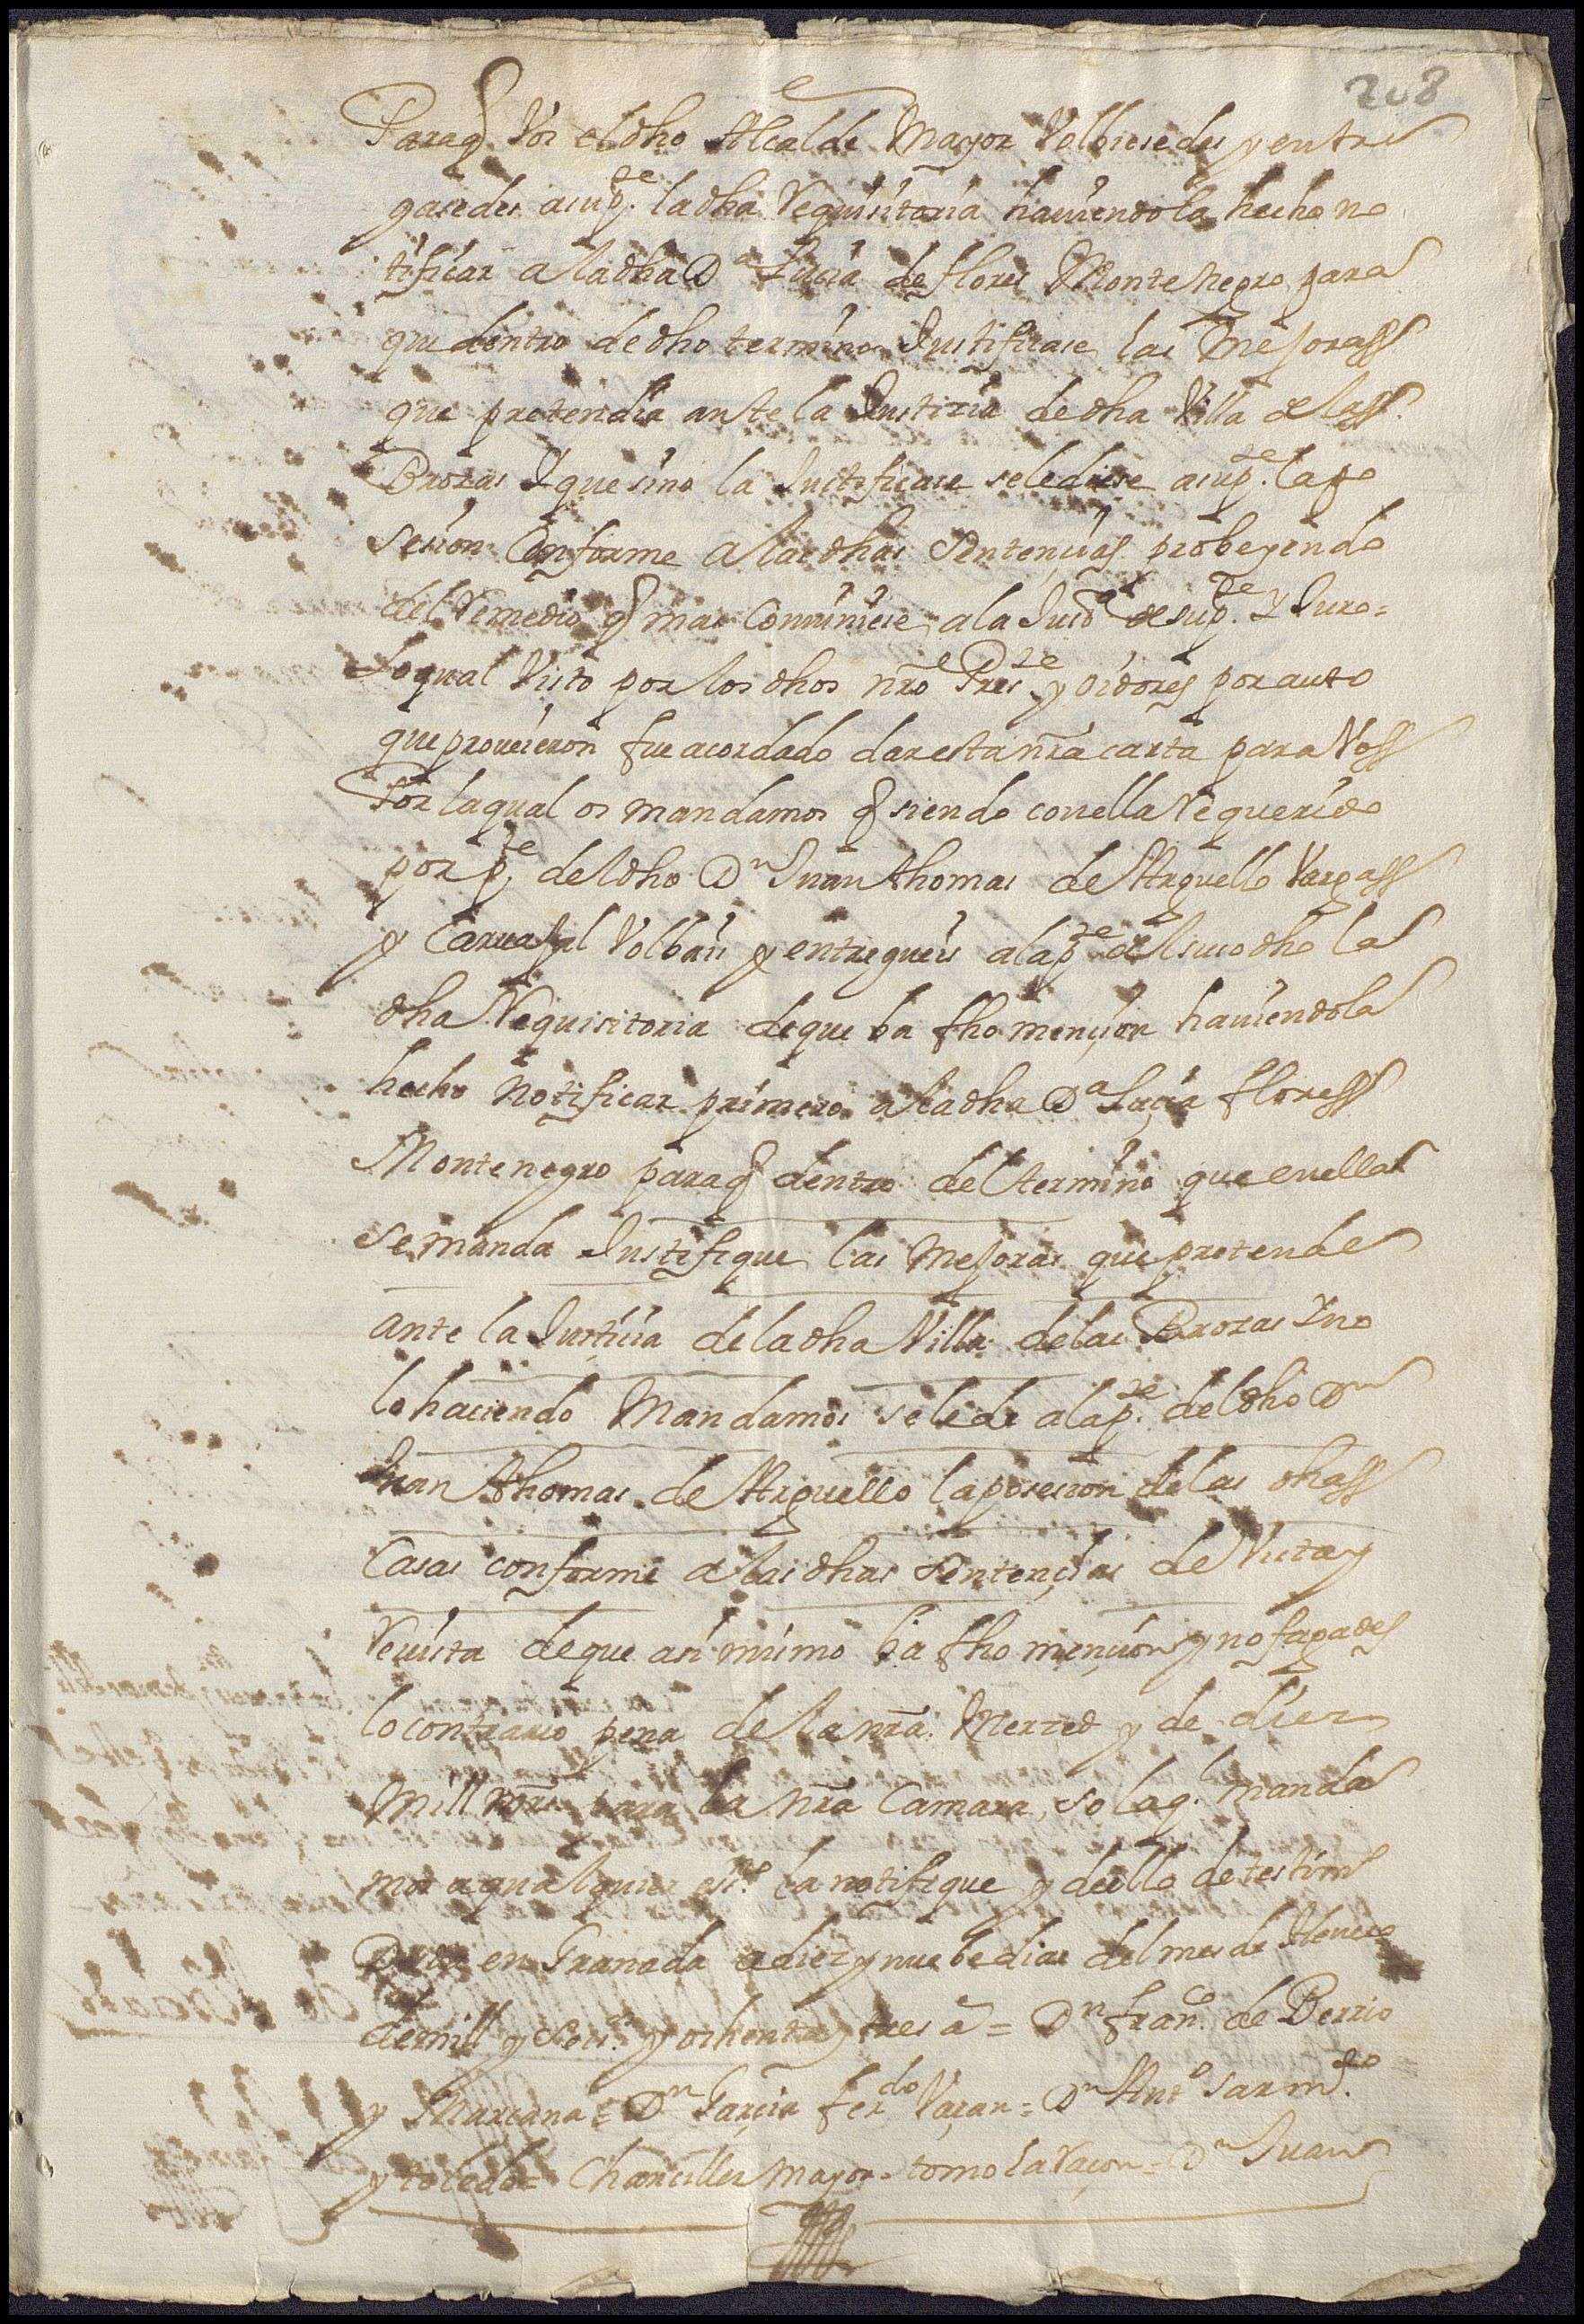 208
Paraq Vos el dho Alcalde Mayor Volbiesedes y entre
gasedes asup.te la dha Requisitoria haviendola hecho no
tificar a la dha Da Lucia de flores Montenegro para
que dentro de dho termino Justificase las Mejoras
que pretendia ante la Justizia de dha Villa de las
Brozas Y que sino la Justificase se le diese asup.te la po
sesion Conforme a las dhas Sentençias probeyendo
del Remedio q mas Combiniese a la Jusda de sup.te Y Juro =
Lo qual Visto por los dhos nro Preste y oidores por auto
que proveieron fue acordado dar esta nra carta para Vos
Por la qual os mandamos q siendo con ella Requerido
por pte del dho Dn Juan Thomas de Arguello Vargas
y Carvajal Volbais y entregueis a la pte del suso dho la
dha Requisitoria de que ba fho mençion haviendola
hecho Notificar primero a la dha Da Luçia flores
Montenegro paraq dentro del termino que en ella
se manda Justifique las Mejoras que pretende
ante la Justicia de la dha Villa de las Brozas Y no
lo haciendo Mandamos se le de a la p.te del dho Dn
Juan Thomas de Arguello la posesion de las dhas
Casas conforme a las dhas Sentençias de Vista y
Revista de que asi mismo ba fho mençion y no fagades
lo contrario pena de la nra Merzed y de diez
mill mrs para la nra Camara, so la q.l manda
mos a qualquier ess.no la notifique y de ello de testimo
Dada en Granada a diez y nuebe dias del mes de Henero
de mill y seis.os y ochenta y tres as = Dn Fran.co de Berrio
y Marzana = Dn Garçia ferdo Baçan = Dn Anto Sarm.to
y toledo = Chanciller mayor = tomo la Raçon = Dn Juan